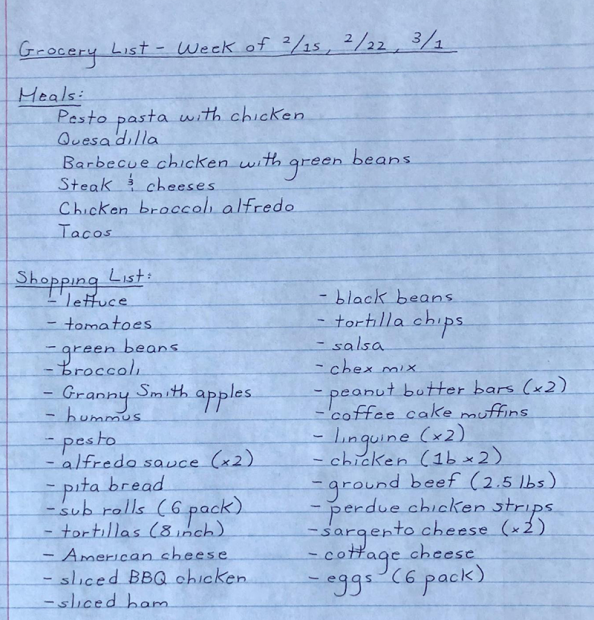 Grocery List - Week of 2/15, 2/22, 3/1
Meals:
Pesto pasta with chicken
Quesadilla
Barbecue chicken with green beans
Steak & cheeses
Chicken broccoli alfredo
Tacos
Shopping List:
- lettuce
- tomatoes
- green beans
- broccoli
- Granny Smith apples
- hummus
- pesto
- alfredo sauce (x2)
- pita bread
- sub rolls (6 pack)
- tortillas (8 inch)
- American cheese
- sliced BBQ chicken
- sliced ham
- black beans
- tortilla chips
- salsa
- chex mix
- peanut butter bars (x2)
- coffee cake muffins
- linguine (x2)
- chicken (1b x2)
- ground beef (2.5 lbs)
- perdue chicken strips
- sargento cheese (x2)
- cottage cheese
- eggs (6 pack)